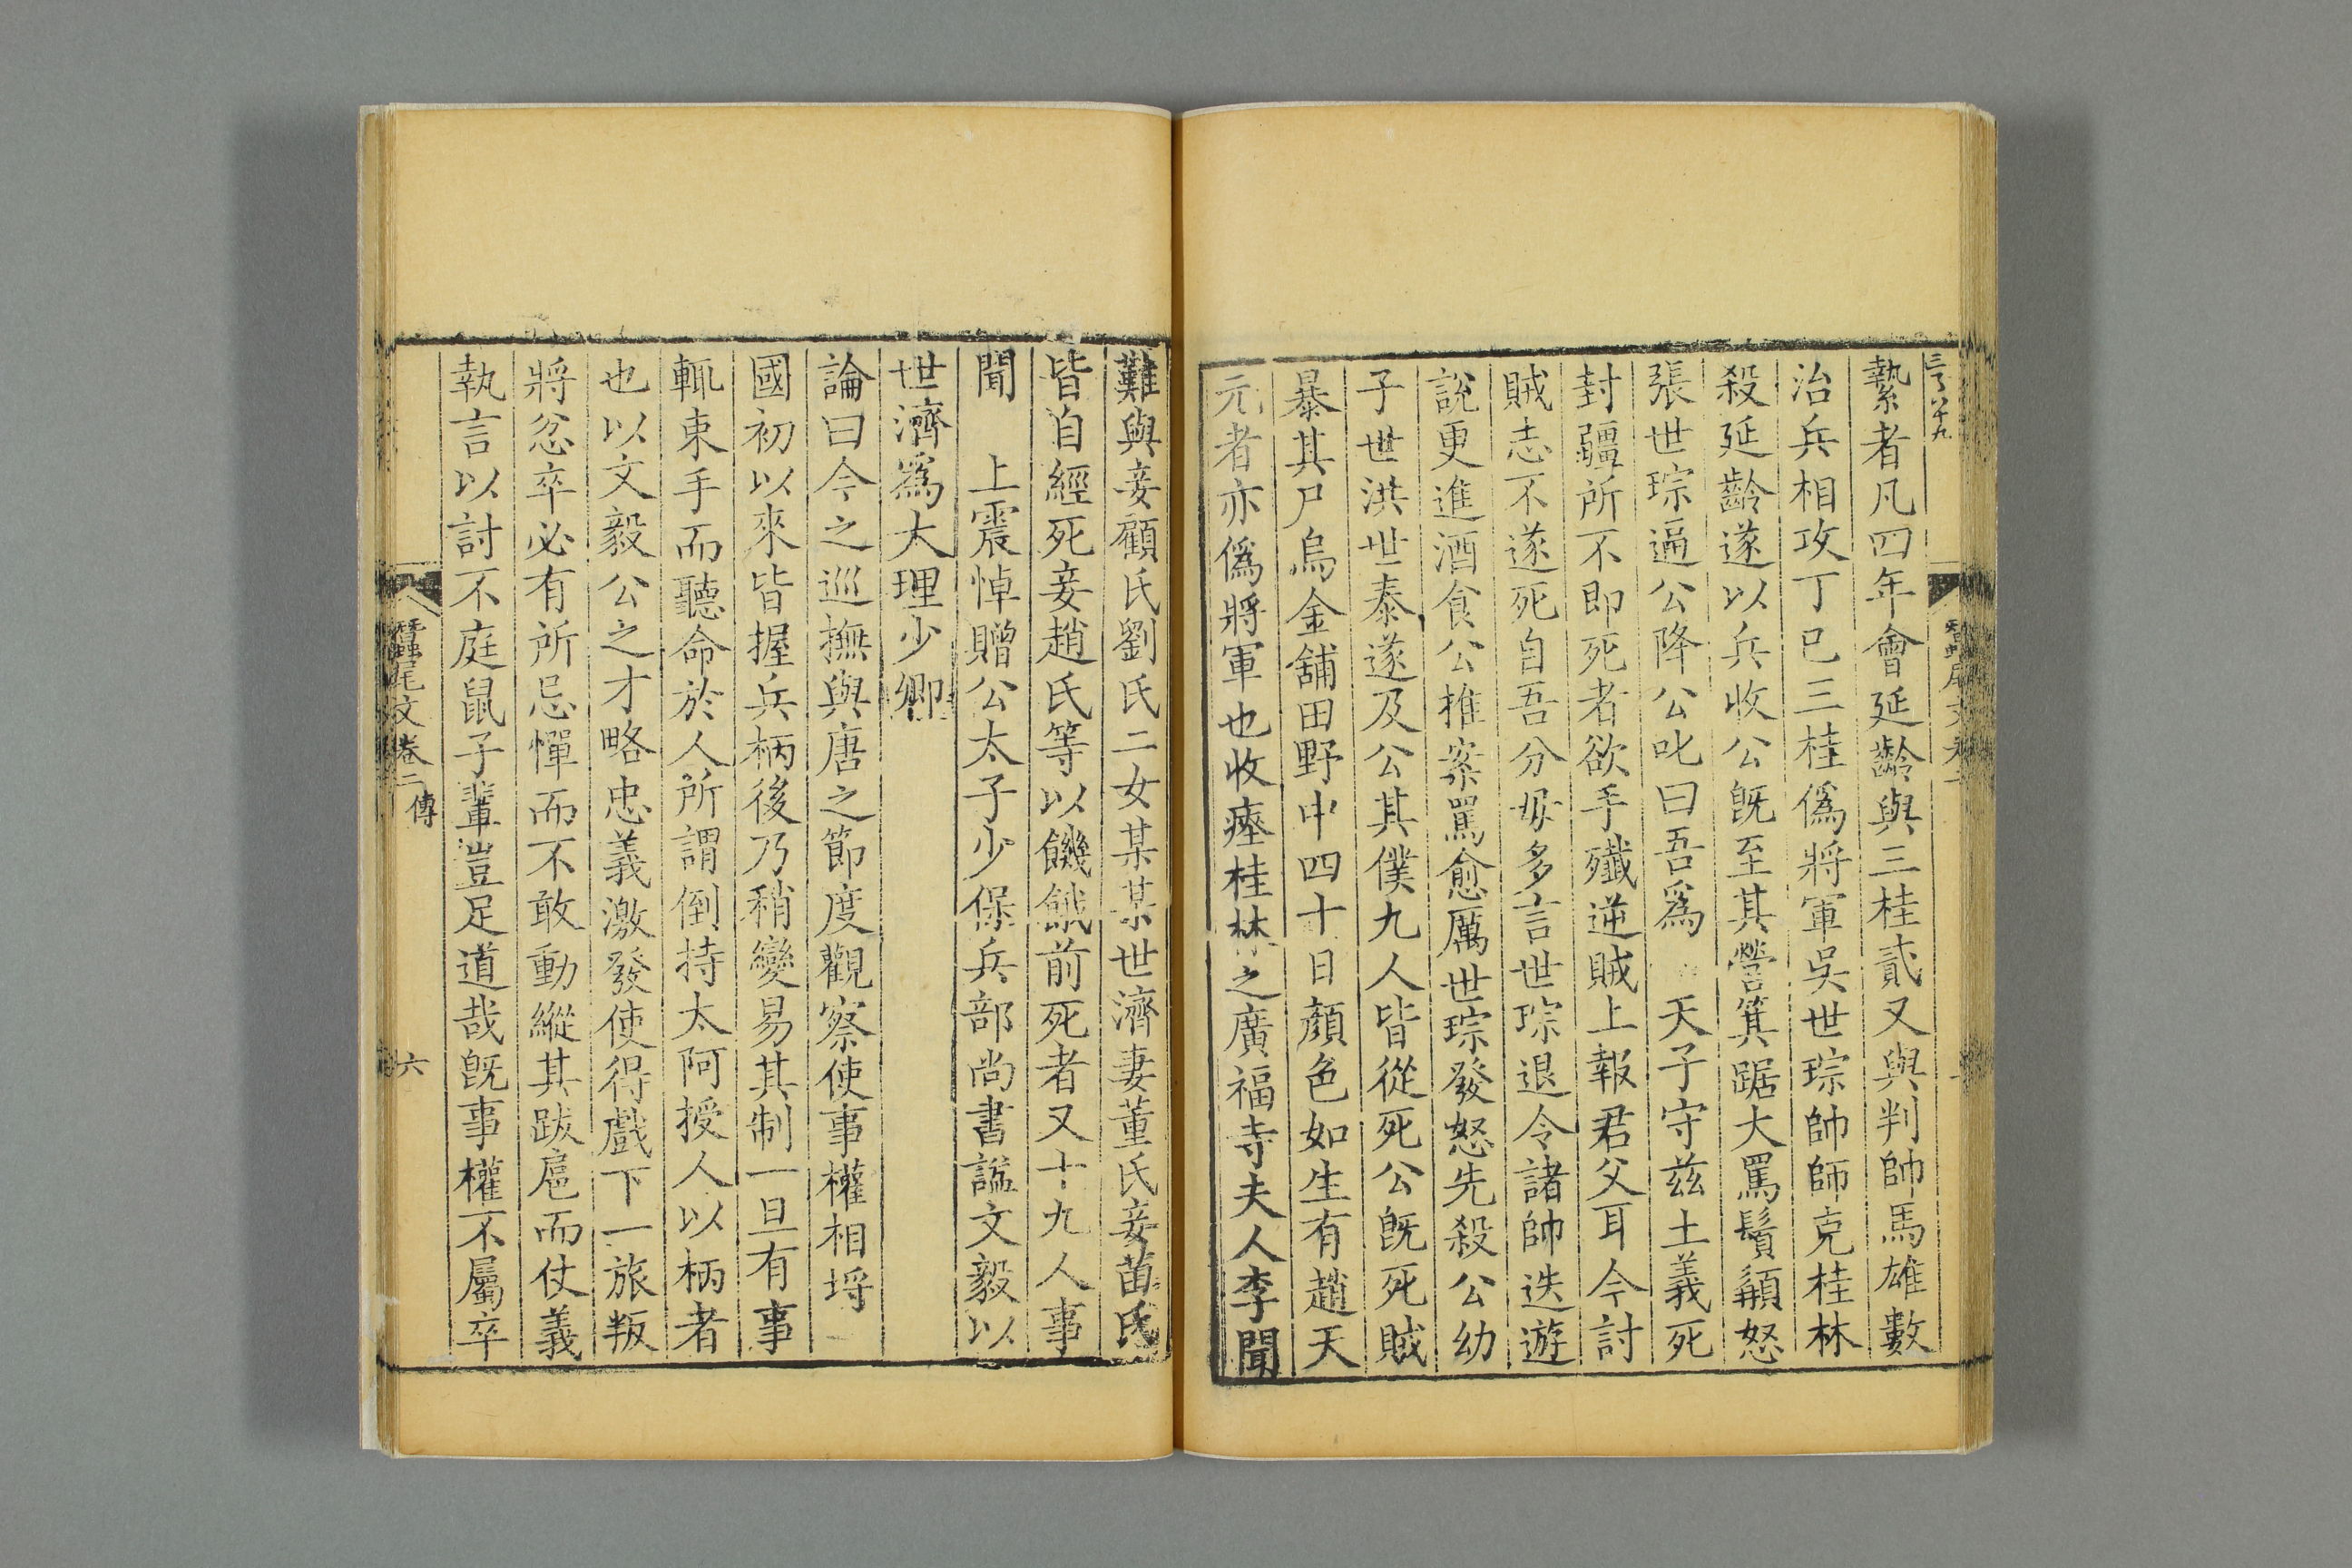 縶者凡四年會延齡與三桂貳又與判帥馬雄數
治兵相攻丁巳三桂僞將軍吳世琮帥師克桂林
殺延齡遂以兵收公旣至其營箕踞大罵鬚䫇怒
張世琮逼公降公叱曰吾爲　天子守兹土義死
封疆所不卽死者欲手殲逆賊上報君父耳今討
賊志不遂死自吾分毋多言世琮退令諸帥迭遊
說更進酒食公推案罵愈厲世琮發怒先殺公幼
子世洪世泰遂及公其僕九人皆從死公旣死賊
暴其尸烏金舖田野中四十日顏色如生有趙天
元者亦僞將軍也收瘞桂林之廣福寺夫人李聞
難與妾顧氏劉氏二女某某世濟妻董氏妾苗氏
皆自經死妾趙氏等以饑餓前死者又十九人事
聞　上震悼贈公太子少保兵部尚書諡文毅以
世濟爲太理少卿
論曰今之巡撫與唐之節度觀察使事權相埒
國初以來皆握兵柄後乃稍變易其制一旦有事
輒束手而聽命於人所謂倒持太阿授人以柄者
也以文毅公之才略忠義激發使得戲下一旅叛
將忿卒必有所忌憚而不敢動縱其跋扈而仗義
執言以討不庭鼠子輩豈足道哉旣事權不屬卒
蠶尾文卷二　傳　六